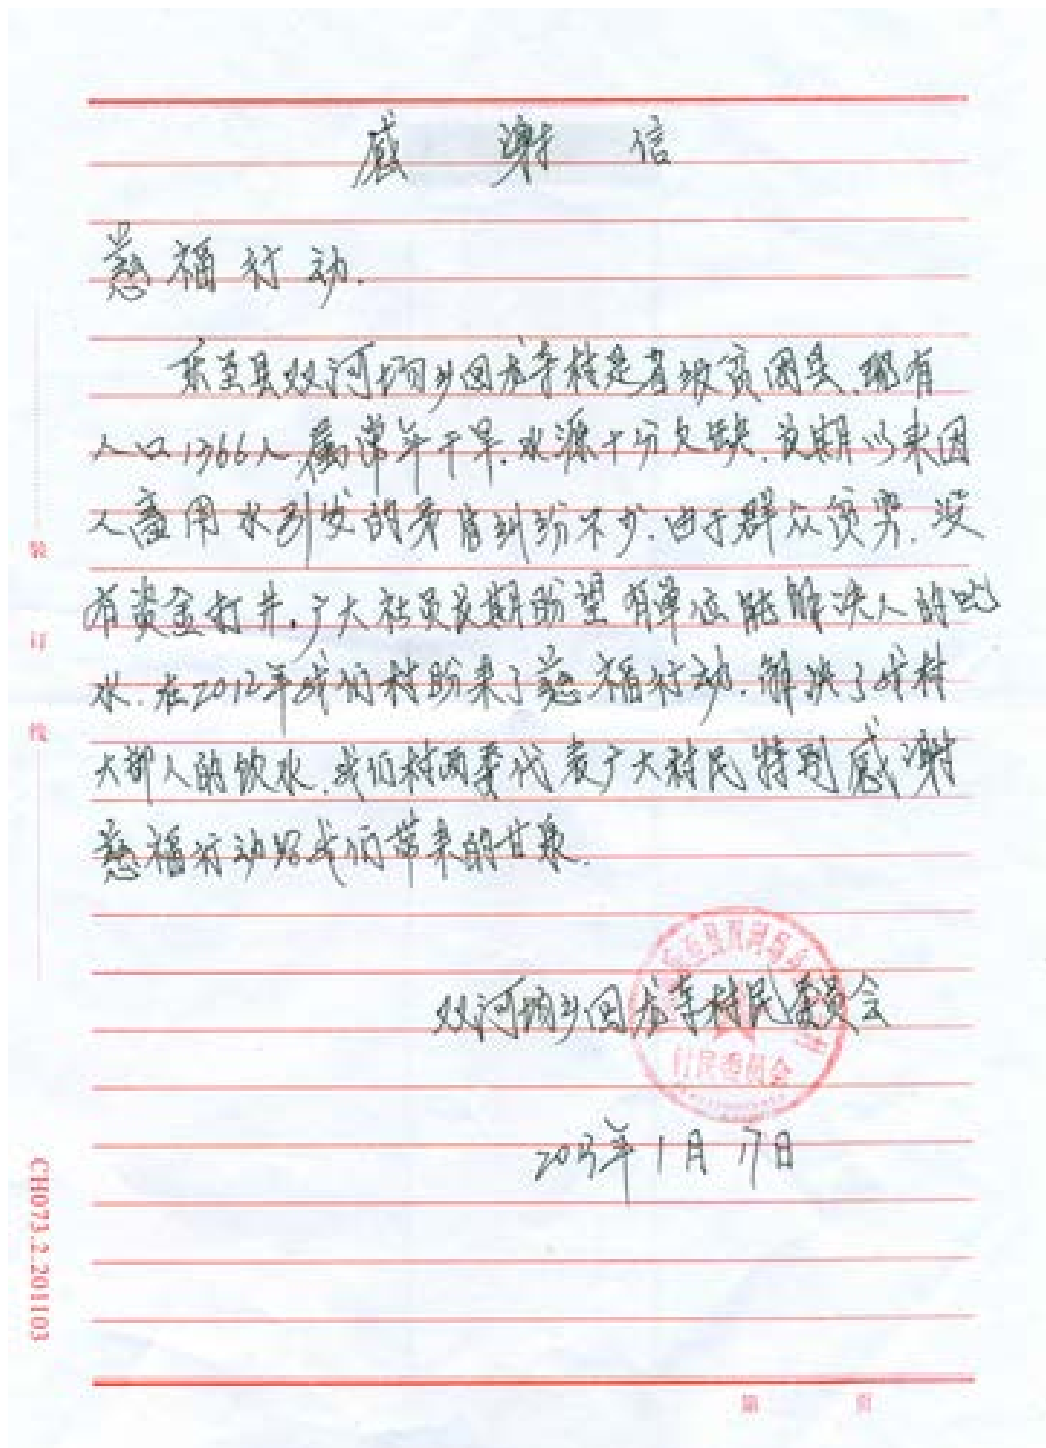 感 谢 信
慈福行动.
乐至县双河场乡回龙寺村是省级贫困县.现有
人口1366人,属常年干旱.水源十分欠缺.长期以来因
人畜用水引发的矛盾纠纷不少.由于群众贫穷.没
有资金打井.广大社员长期盼望有单位能解决人的吃
水.在2012年我们村盼来了慈福行动.解决了我村
大部人的饮水.我们村两委代表广大村民特别感谢
慈福行动给我们带来的甘泉.
双河场乡回龙寺村民委员会
村民委员会
2013年1月17日
装
订
线
CH073.2.201103
第 页